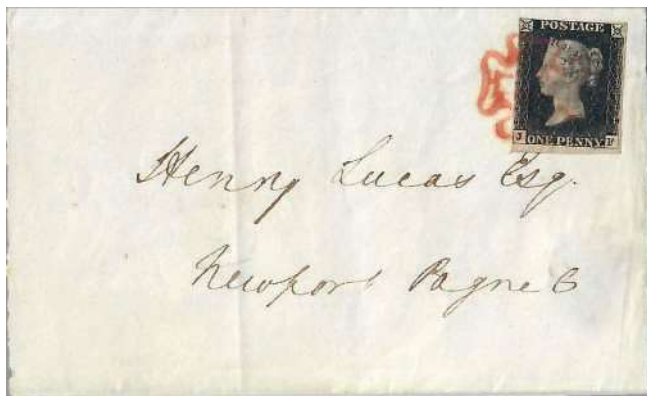 POSTAGE
J ONE PENNY F
Henny Lucas Esq.
Newport Pagnel